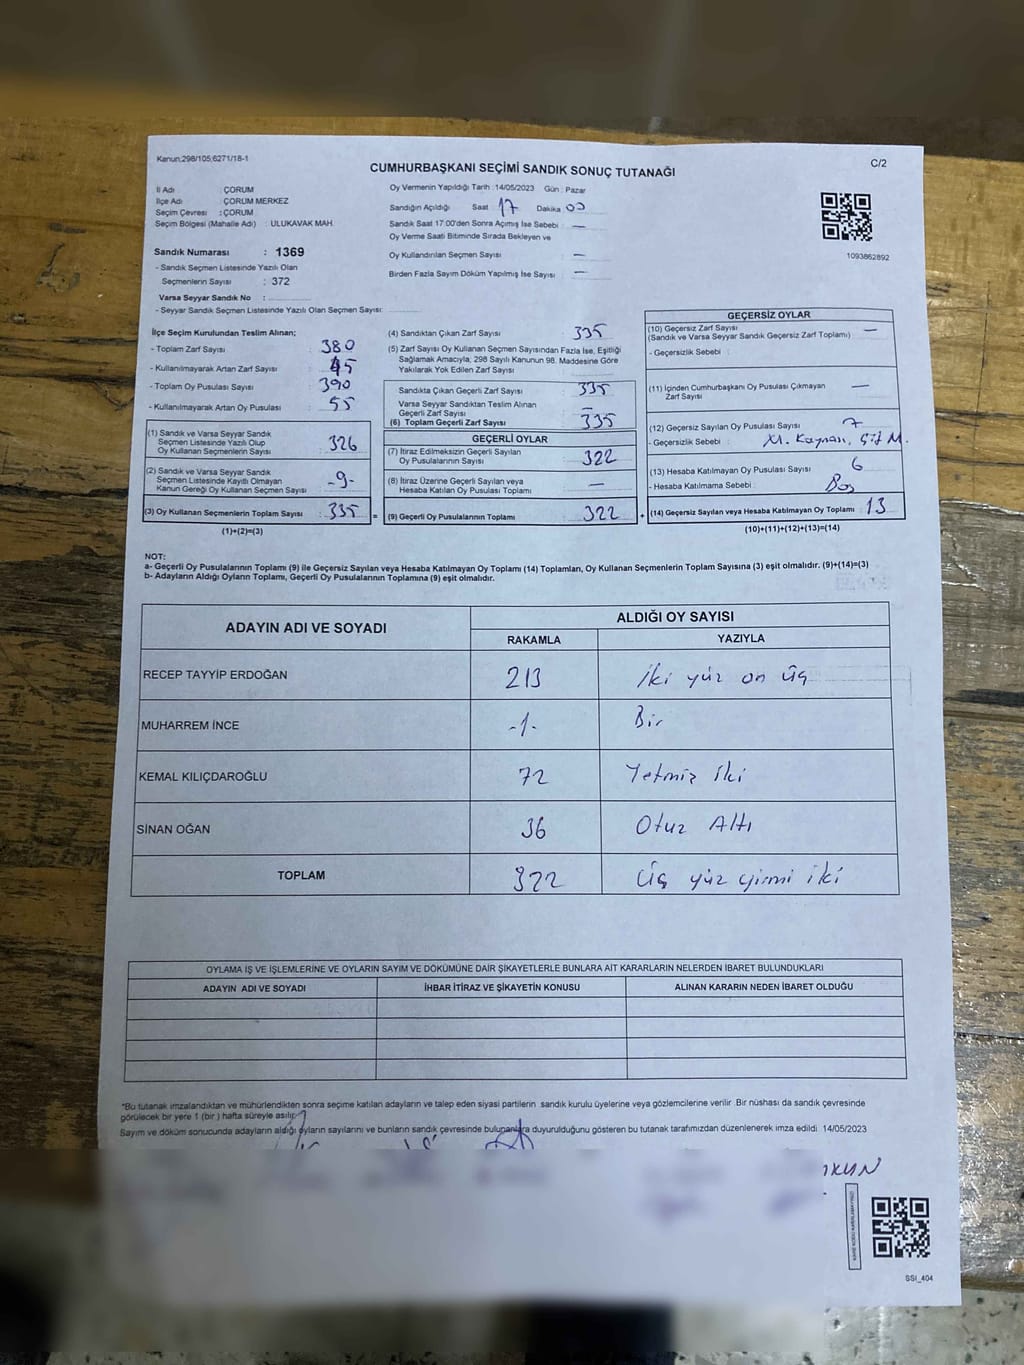 Kanun:298/105;6271/18-1
C/2
CUMHURBAŞKANI SEÇİMİ SANDIK SONUÇ TUTANAĞI
İl Adı : ÇORUM
İlçe Adı : ÇORUM MERKEZ
Seçim Çevresi : ÇORUM
Seçim Bölgesi (Mahalle Adı) : ULUKAVAK MAH.
Sandık Numarası : 1369
- Sandık Seçmen Listesinde Yazılı Olan
Seçmenlerin Sayısı : 372
Varsa Seyyar Sandık No :
- Seyyar Sandık Seçmen Listesinde Yazılı Olan Seçmen Sayısı:
Oy Vermenin Yapıldığı Tarih : 14/05/2023 Gün : Pazar
Sandığın Açıldığı Saat 17 Dakika 00
Sandık Saat 17:00'den Sonra Açımış İse Sebebi : —
Oy Verme Saati Bitiminde Sırada Bekleyen ve
Oy Kullandırılan Seçmen Sayısı : —
Birden Fazla Sayım Döküm Yapılmış İse Sayısı : —
1093862892
İlçe Seçim Kurulundan Teslim Alınan;
- Toplam Zarf Sayısı : 380
- Kullanılmayarak Artan Zarf Sayısı : 45
- Toplam Oy Pusulası Sayısı : 390
- Kullanılmayarak Artan Oy Pusulası : 55
(1) Sandık ve Varsa Seyyar Sandık
Seçmen Listesinde Yazılı Olup
Oy Kullanan Seçmenlerin Sayısı : 326
(2) Sandık ve Varsa Seyyar Sandık
Seçmen Listesinde Kayıtlı Olmayan
Kanun Gereği Oy Kullanan Seçmen Sayısı : -9-
(3) Oy Kullanan Seçmenlerin Toplam Sayısı : 335 =
(1)+(2)=(3)
(4) Sandıktan Çıkan Zarf Sayısı : 335
(5) Zarf Sayısı Oy Kullanan Seçmen Sayısından Fazla İse, Eşitliği
Sağlamak Amacıyla; 298 Sayılı Kanunun 98. Maddesine Göre
Yakılarak Yok Edilen Zarf Sayısı :
Sandıkta Çıkan Geçerli Zarf Sayısı : 335
Varsa Seyyar Sandıktan Teslim Alınan
Geçerli Zarf Sayısı : —
(6) Toplam Geçerli Zarf Sayısı : 335
GEÇERLİ OYLAR
(7) İtiraz Edilmeksizin Geçerli Sayılan
Oy Pusulalarının Sayısı : 322
(8) İtiraz Üzerine Geçerli Sayılan veya
Hesaba Katılan Oy Pusulası Toplamı : —
(9) Geçerli Oy Pusulalarının Toplamı : 322 +
GEÇERSİZ OYLAR
(10) Geçersiz Zarf Sayısı : —
(Sandık ve Varsa Seyyar Sandık Geçersiz Zarf Toplamı)
- Geçersizlik Sebebi :
(11) İçinden Cumhurbaşkanı Oy Pusulası Çıkmayan
Zarf Sayısı : —
(12) Geçersiz Sayılan Oy Pusulası Sayısı : 7
- Geçersizlik Sebebi : M. Kaynası, Çift M.
(13) Hesaba Katılmayan Oy Pusulası Sayısı : 6
- Hesaba Katılmama Sebebi : Boş
(14) Geçersiz Sayılan veya Hesaba Katılmayan Oy Toplamı : 13
(10)+(11)+(12)+(13)=(14)
NOT:
a- Geçerli Oy Pusulalarının Toplamı (9) ile Geçersiz Sayılan veya Hesaba Katılmayan Oy Toplamı (14) Toplamları, Oy Kullanan Seçmenlerin Toplam Sayısına (3) eşit olmalıdır. (9)+(14)=(3)
b- Adayların Aldığı Oyların Toplamı, Geçerli Oy Pusulalarının Toplamına (9) eşit olmalıdır.
ADAYIN ADI VE SOYADI
ALDIĞI OY SAYISI
RAKAMLA YAZIYLA
RECEP TAYYİP ERDOĞAN 213 İki yüz on üç
MUHARREM İNCE -1- Bir
KEMAL KILIÇDAROĞLU 72 Yetmiş iki
SİNAN OĞAN 36 Otuz Altı
TOPLAM 322 Üç yüz yirmi iki
OYLAMA İŞ VE İŞLEMLERİNE VE OYLARIN SAYIM VE DÖKÜMÜNE DAİR ŞİKAYETLERLE BUNLARA AİT KARARLARIN NELERDEN İBARET BULUNDUKLARI
ADAYIN ADI VE SOYADI İHBAR İTİRAZ VE ŞİKAYETİN KONUSU ALINAN KARARIN NEDEN İBARET OLDUĞU
*Bu tutanak imzalandıktan ve mühürlendikten sonra seçime katılan adayların ve talep eden siyasi partilerin sandık kurulu üyelerine veya gözlemcilerine verilir. Bir nüshası da sandık çevresinde
görülecek bir yere 1 (bir) hafta süreyle asılır.
Sayım ve döküm sonucunda adayların aldığı oyların sayılarını ve bunların sandık çevresinde bulunanlara duyurulduğunu gösteren bu tutanak tarafımızdan düzenlenerek imza edildi 14/05/2023
SSI_404